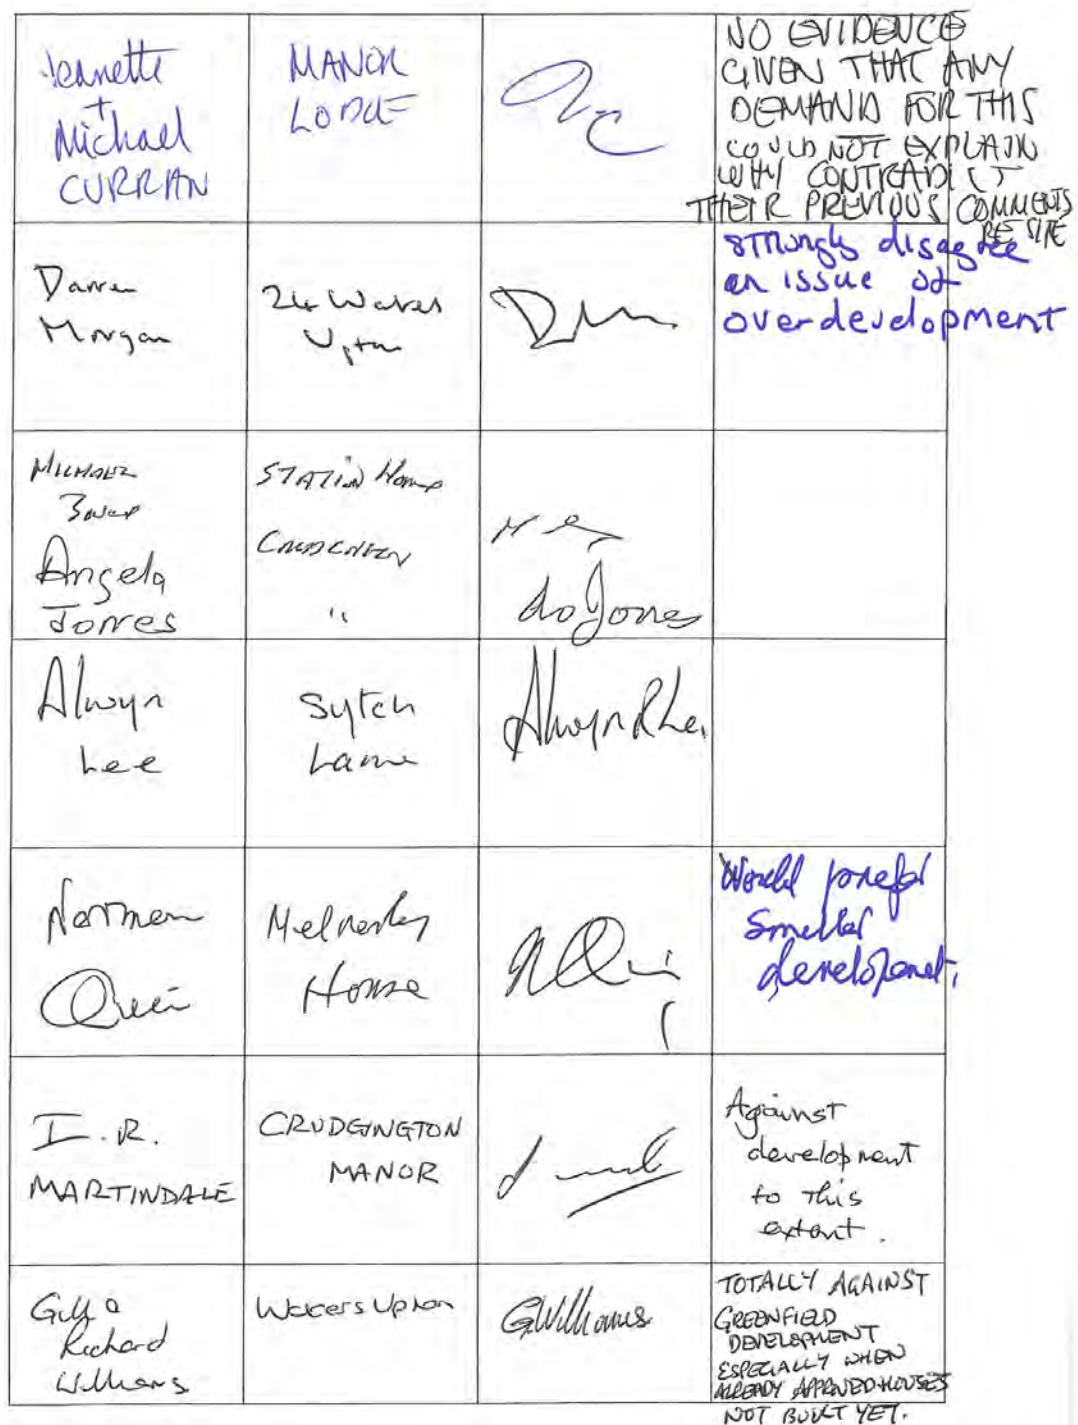 Jeanette
+
Michael
CURRAN
MANOR
LODGE
NO EVIDENCE
GIVEN THAT ANY
DEMAND FOR THIS
COULD NOT EXPLAIN
WHY CONTRADICT
THEIR PREVIOUS COMMENTS
RE SITE
Darren
Morgan
24 Waters
Upton
strongly disagree
an issue of
overdevelopment
MICHAEL
Angela
Jones
STATION House
"
do Jones
Alwyn
Lee
Sytch
Lane
Alwyn R Lee
Norman
House
Would prefer
smaller
development.
I. R.
MARTINDALE
CRUDGINGTON
MANOR
Against
development
to this
extent.
Gill &
Richard
Williams
Waters Upton
GWilliams
TOTALLY AGAINST
GREENFIELD
DEVELOPMENT
ESPECIALLY WHEN
ALREADY APPROVED HOUSES
NOT BUILT YET.